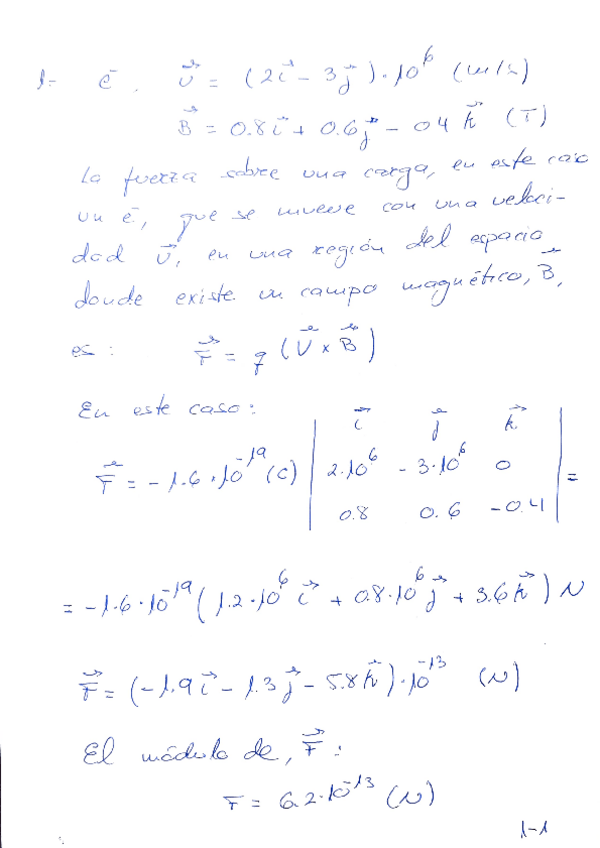 1- e⁻, v⃗ = (2i⃗ - 3j⃗)·10⁶ (m/s)
B⃗ = 0.8i⃗ + 0.6j⃗ - 04 k⃗ (T)
La fuerza sobre una carga, en este caso
un e⁻, que se mueve con una veloci-
dad v⃗, en una región del espacio
donde existe un campo magnético, B⃗,
es: F⃗ = q (v⃗ x B⃗)
En este caso:
i⃗ j⃗ k⃗
F⃗ = -1.6·10⁻¹⁹(C) | 2·10⁶ -3·10⁶ 0 | =
0.8 0.6 -0.4
= -1.6·10⁻¹⁹ (1.2·10⁶ i⃗ + 0.8·10⁶ j⃗ + 3.6k⃗) N
F⃗ = (-1.9i⃗ - 1.3j⃗ - 5.8k⃗)·10⁻¹³ (N)
El módulo de, F⃗:
F = 6.2·10⁻¹³ (N)
1-1